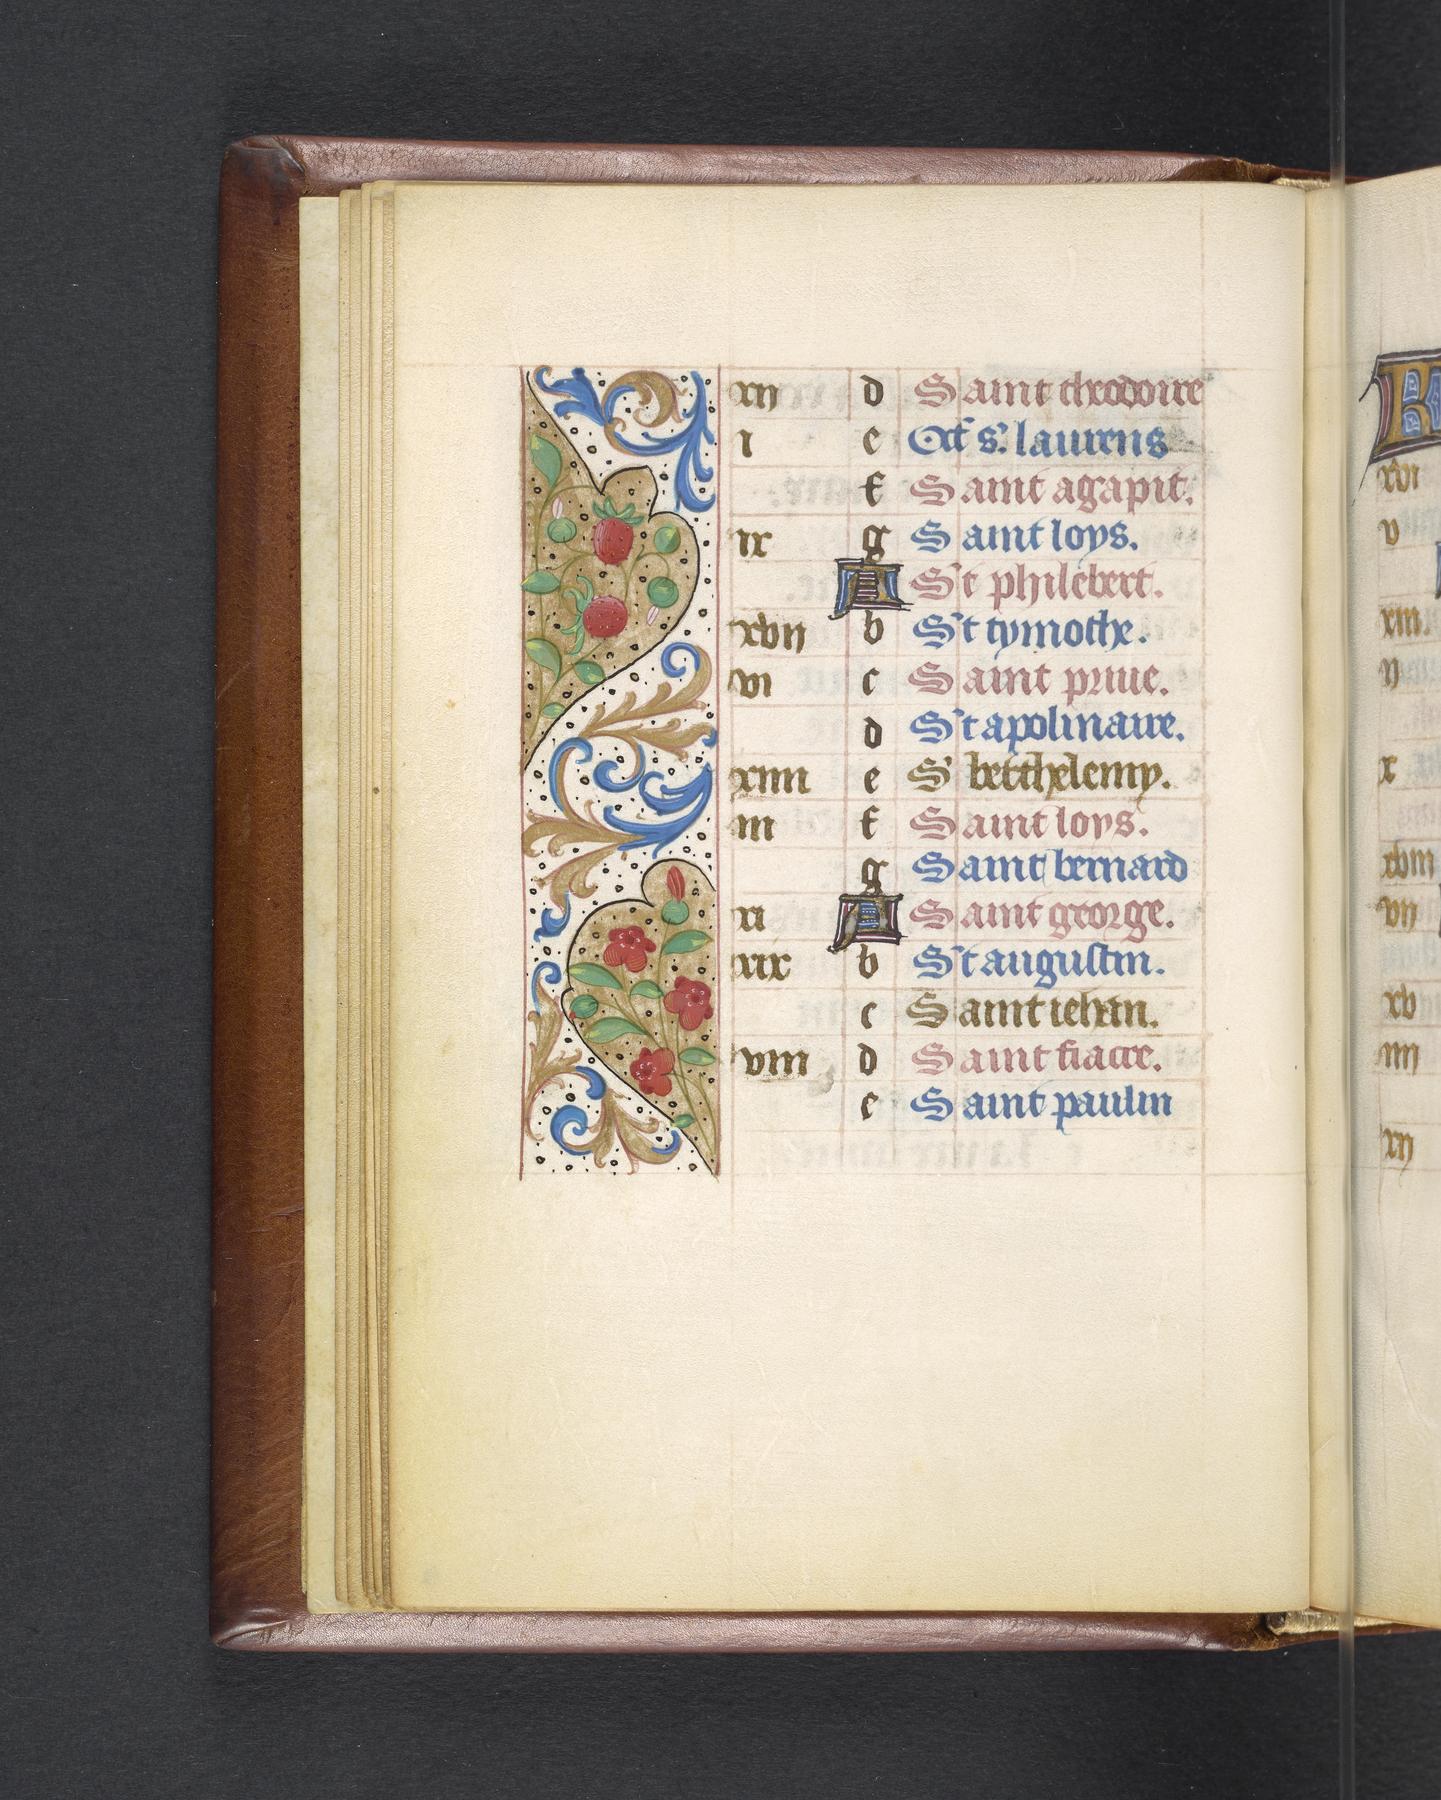 xii d Saint theodoire
i e Oct s'. laurens
f Saint agapit.
ix g Saint loys.
A St philebert.
xvii b St tymothe.
vi c Saint priue.
d St apolinaire.
xiiii e S' berthelemy.
iii f Saint loys.
g Saint bernard
xi A Saint george.
xix b St augustin.
c Saint iehan.
viii d Saint fiacre.
e Saint paulin
xvi
v
xiii.
ii
x
xviii
vii
xv
iiii
xii